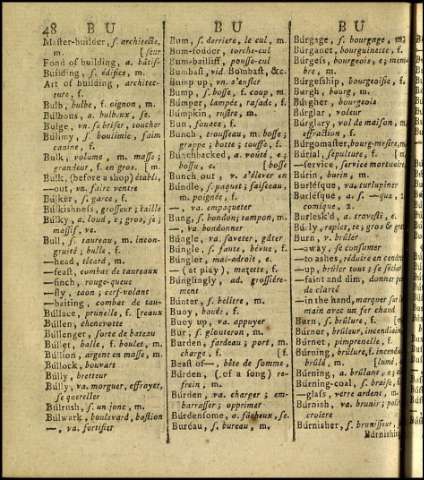 48 B U
Master-builder, s. architecte,
m. [seur
Fond of building, a. bâtis-
Building, s. édifice, m.
Art of building, architec-
ture, f.
Bulb, bulbe, f. oignon, m.
Bulbous, a. bulbeux, se.
Bulge, va. se briser, toucher
Bulimy, s. boulimie, faim
canine, f.
Bulk, volume, m. masse;
grandeur, f. en gros. [m.
Bulk, (before a shop) établi,
—out, vn. faire ventre
Búlker, s. garce, f.
Búlkishness, grosseur; taille
Búlky, a. loud, e; gros, se;
massif, ve.
Bull, s. taureau, m. incon-
gruité; bulle, f.
—head, têtard, m.
—feast, combat de taureaux
—finch, rouge-queue
—fly, taon; cerf-volant
—baiting, combat de tau-
Búllace, prunelle, f. [reaux
Búllen, chenevotte
Búllenger, sorte de bateau
Búllet, balle, f. boulet, m.
Búllion, argent en masse, m.
Búllock, bouvart
Búlly, bretteur
Búlly, va. morguer, effrayer,
se quereller
Búlrush, s. un jonc, m.
Búlwark, boulevard, bastion
—, va. fortifier
B U
Bum, s. derriere, le cul, m.
Bum-fodder, torche-cul
Bum-bailiff, pousse-cul
Bumbast, vid. Bombast, &c.
Bump up, va. s'enfler
Bump, s. bosse, f. coup, m.
Búmper, lampée, rasade, f.
Búmpkin, rustre, m.
Bun, f.
Bunch, trousseau, m. bosse;
grappe; botte; touffe, f.
Búnchbacked, a. vouté, e;
bossu, e [bosse
Bunch out, v. s'élever en
Búndle, s. paquet; faisceau,
m. poignée, f.
—, va. empaqueter
Bung, s. bondon; tampon, m.
—, va. bondonner
Búngle, va. saveter, gâter
Búngle, s. faute, bévue, f.
Búngler, mal-adroit, e
— (at play), mazette, f.
Búnglingly, ad. grossiére-
ment
Búnter, s. m.
Buoy, bouée, f.
Buoy up, va. appuyer
Bur, s. glouteron, m.
Burden, fardeau; port, m.
charge, f. [f.
Beast of—, bête de somme,
Búrden, (of a song) re-
frain, m.
Búrden, va. charger; em-
barrasser; opprimer
Búrdensome, a. fâcheux, se.
Buréau, s. bureau, m.
B U
Búrgage, s. bourgage, m.
Búrganet, bourguinotte, f.
Búrgeis, bourgeois, e; mem-
bre, m.
Búrgeship, bourgeoisie, f.
Burgh, bourg, m.
Búrgher, bourgeois
Búrglar, voleur
Búrglary, vol de maison, m.
effraction, f.
Búrgomaster, bourg-mestre, m.
Búrial, sepulture, f.
—service, service mortuaire
Búrin, burin, m.
Burlésque, va. turlupiner
Burlésque, a. s. —que,
comique, 2.
Burlesk'd, a. travesti, e.
Búrly, replet, te; gros & gras
Burn, v. brûler
—away, se consumer
—to ashes, réduire en cendres
—up, brûler tous; se sécher
—faint and dim, donner peu
de clarté
—in the hand, marquer sur la
main avec un fer chaud
Burn, s. brûlure, f.
Búrner, brûleur, incendiaire
Búrnet, pimprenelle, f.
Búrning, brûlure, f. incendie
brûlé, m.
Búrning, a. brûlant, e;
Búrning-coal, s. braise, f.
—glass, verre ardent, m.
Búrnish, va. brunir; polir
croître
Búrnisher, s. brunisseur,
Búrnishing